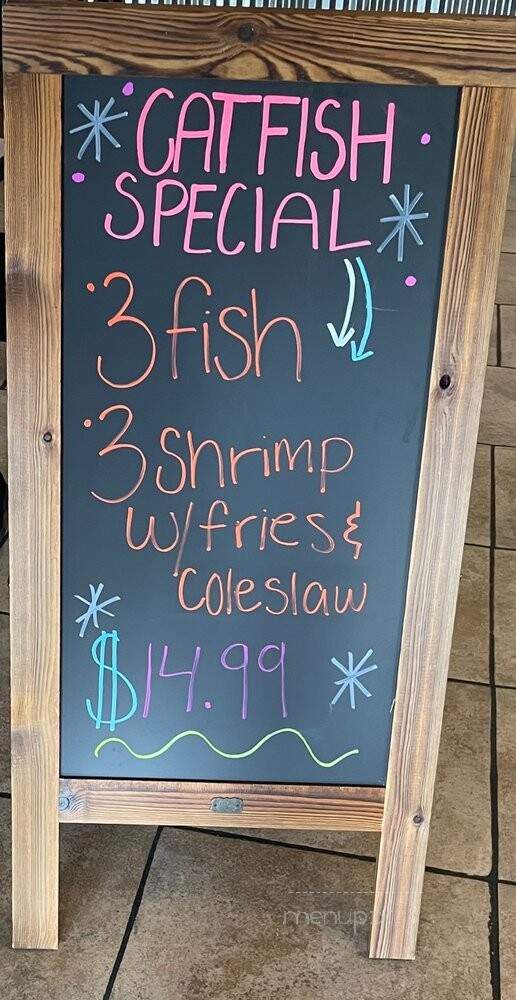 CATFISH
SPECIAL
• 3 fish
• 3 shrimp
w/fries &
Coleslaw
$14.99
menupix